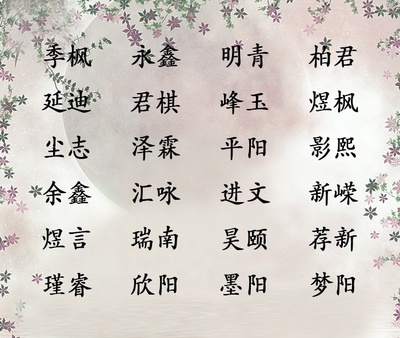 季枫 永鑫 明青 柏君
延迪 君棋 峰玉 煜枫
尘志 泽霖 平阳 影熙
余鑫 汇咏 进文 新嵘
煜言 瑞南 昊颐 荐新
瑾睿 欣阳 墨阳 梦阳